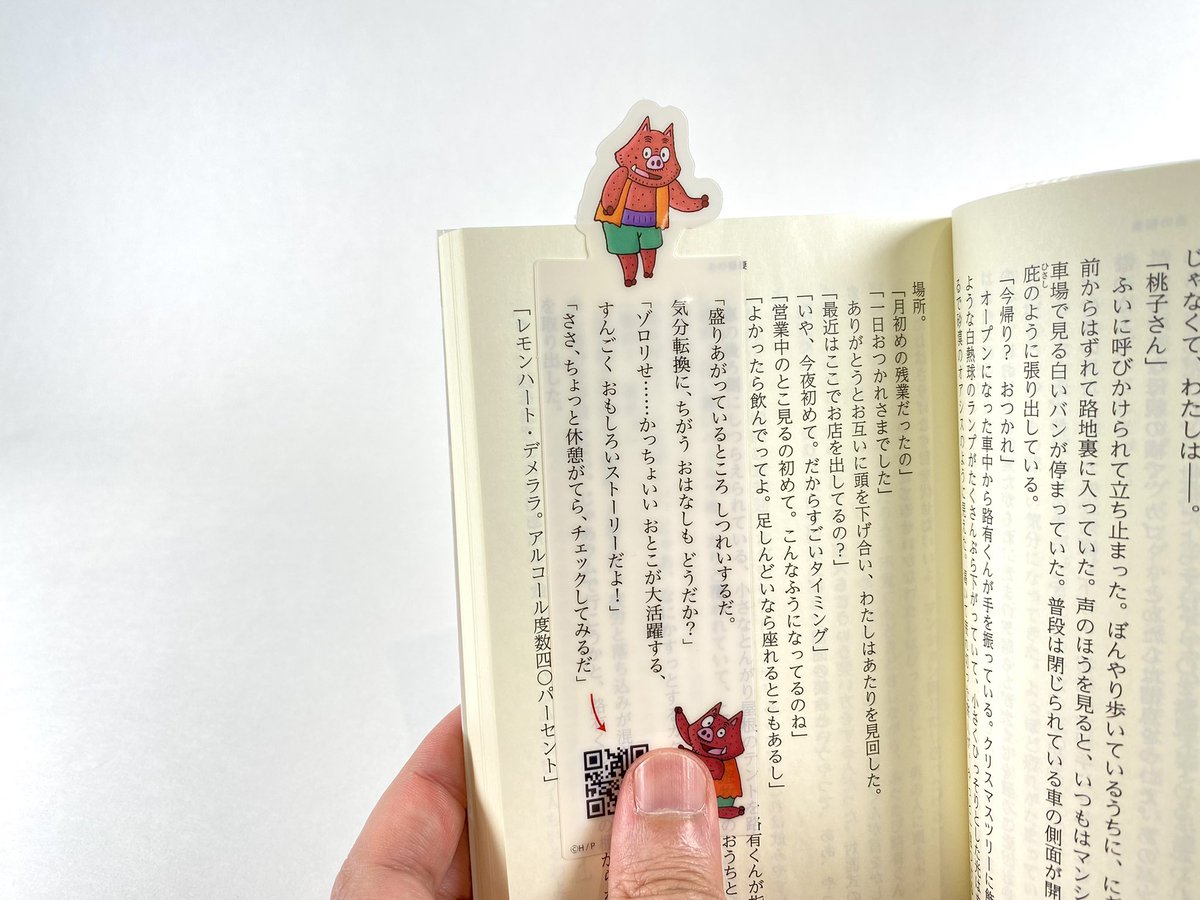 じゃなくて、わたしは――。
「桃子さん」
ふいに呼びかけられて立ち止まった。ぼんやり歩いているうちに、に
前からはずれて路地裏に入っていた。声のほうを見ると、いつもはマンシ
車場で見る白いバンが停まっていた。普段は閉じられている車の側面が開
庇のように張り出している。
ひさし
「今帰り？　おつかれ」
オープンになった車中から路有くんが手を振っている。クリスマスツリーに飾
ような白熱球のランプがたくさんぶら下がっていて、小さくひっそりとした
場所。
「月初めの残業だったの」
「一日おつかれさまでした」
ありがとうとお互いに頭を下げ合い、わたしはあたりを見回した。
「最近はここでお店を出してるの？」
「いや、今夜初めて。だからすごいタイミング」
「営業中のとこ見るの初めて。こんなふうになってるのね」
「よかったら飲んでってよ。足しんどいなら座れるとこもあるし」
「盛りあがっているところ しつれいするだ。
気分転換に、ちがう おはなしも どうだか？」
「ゾロリせ……かっちょいい おとこが大活躍する、
すんごく おもしろいストーリーだよ！」
「ささ、ちょっと休憩がてら、チェックしてみるだ」
「レモンハート・デメララ。アルコール度数四〇パーセント」
©H/P